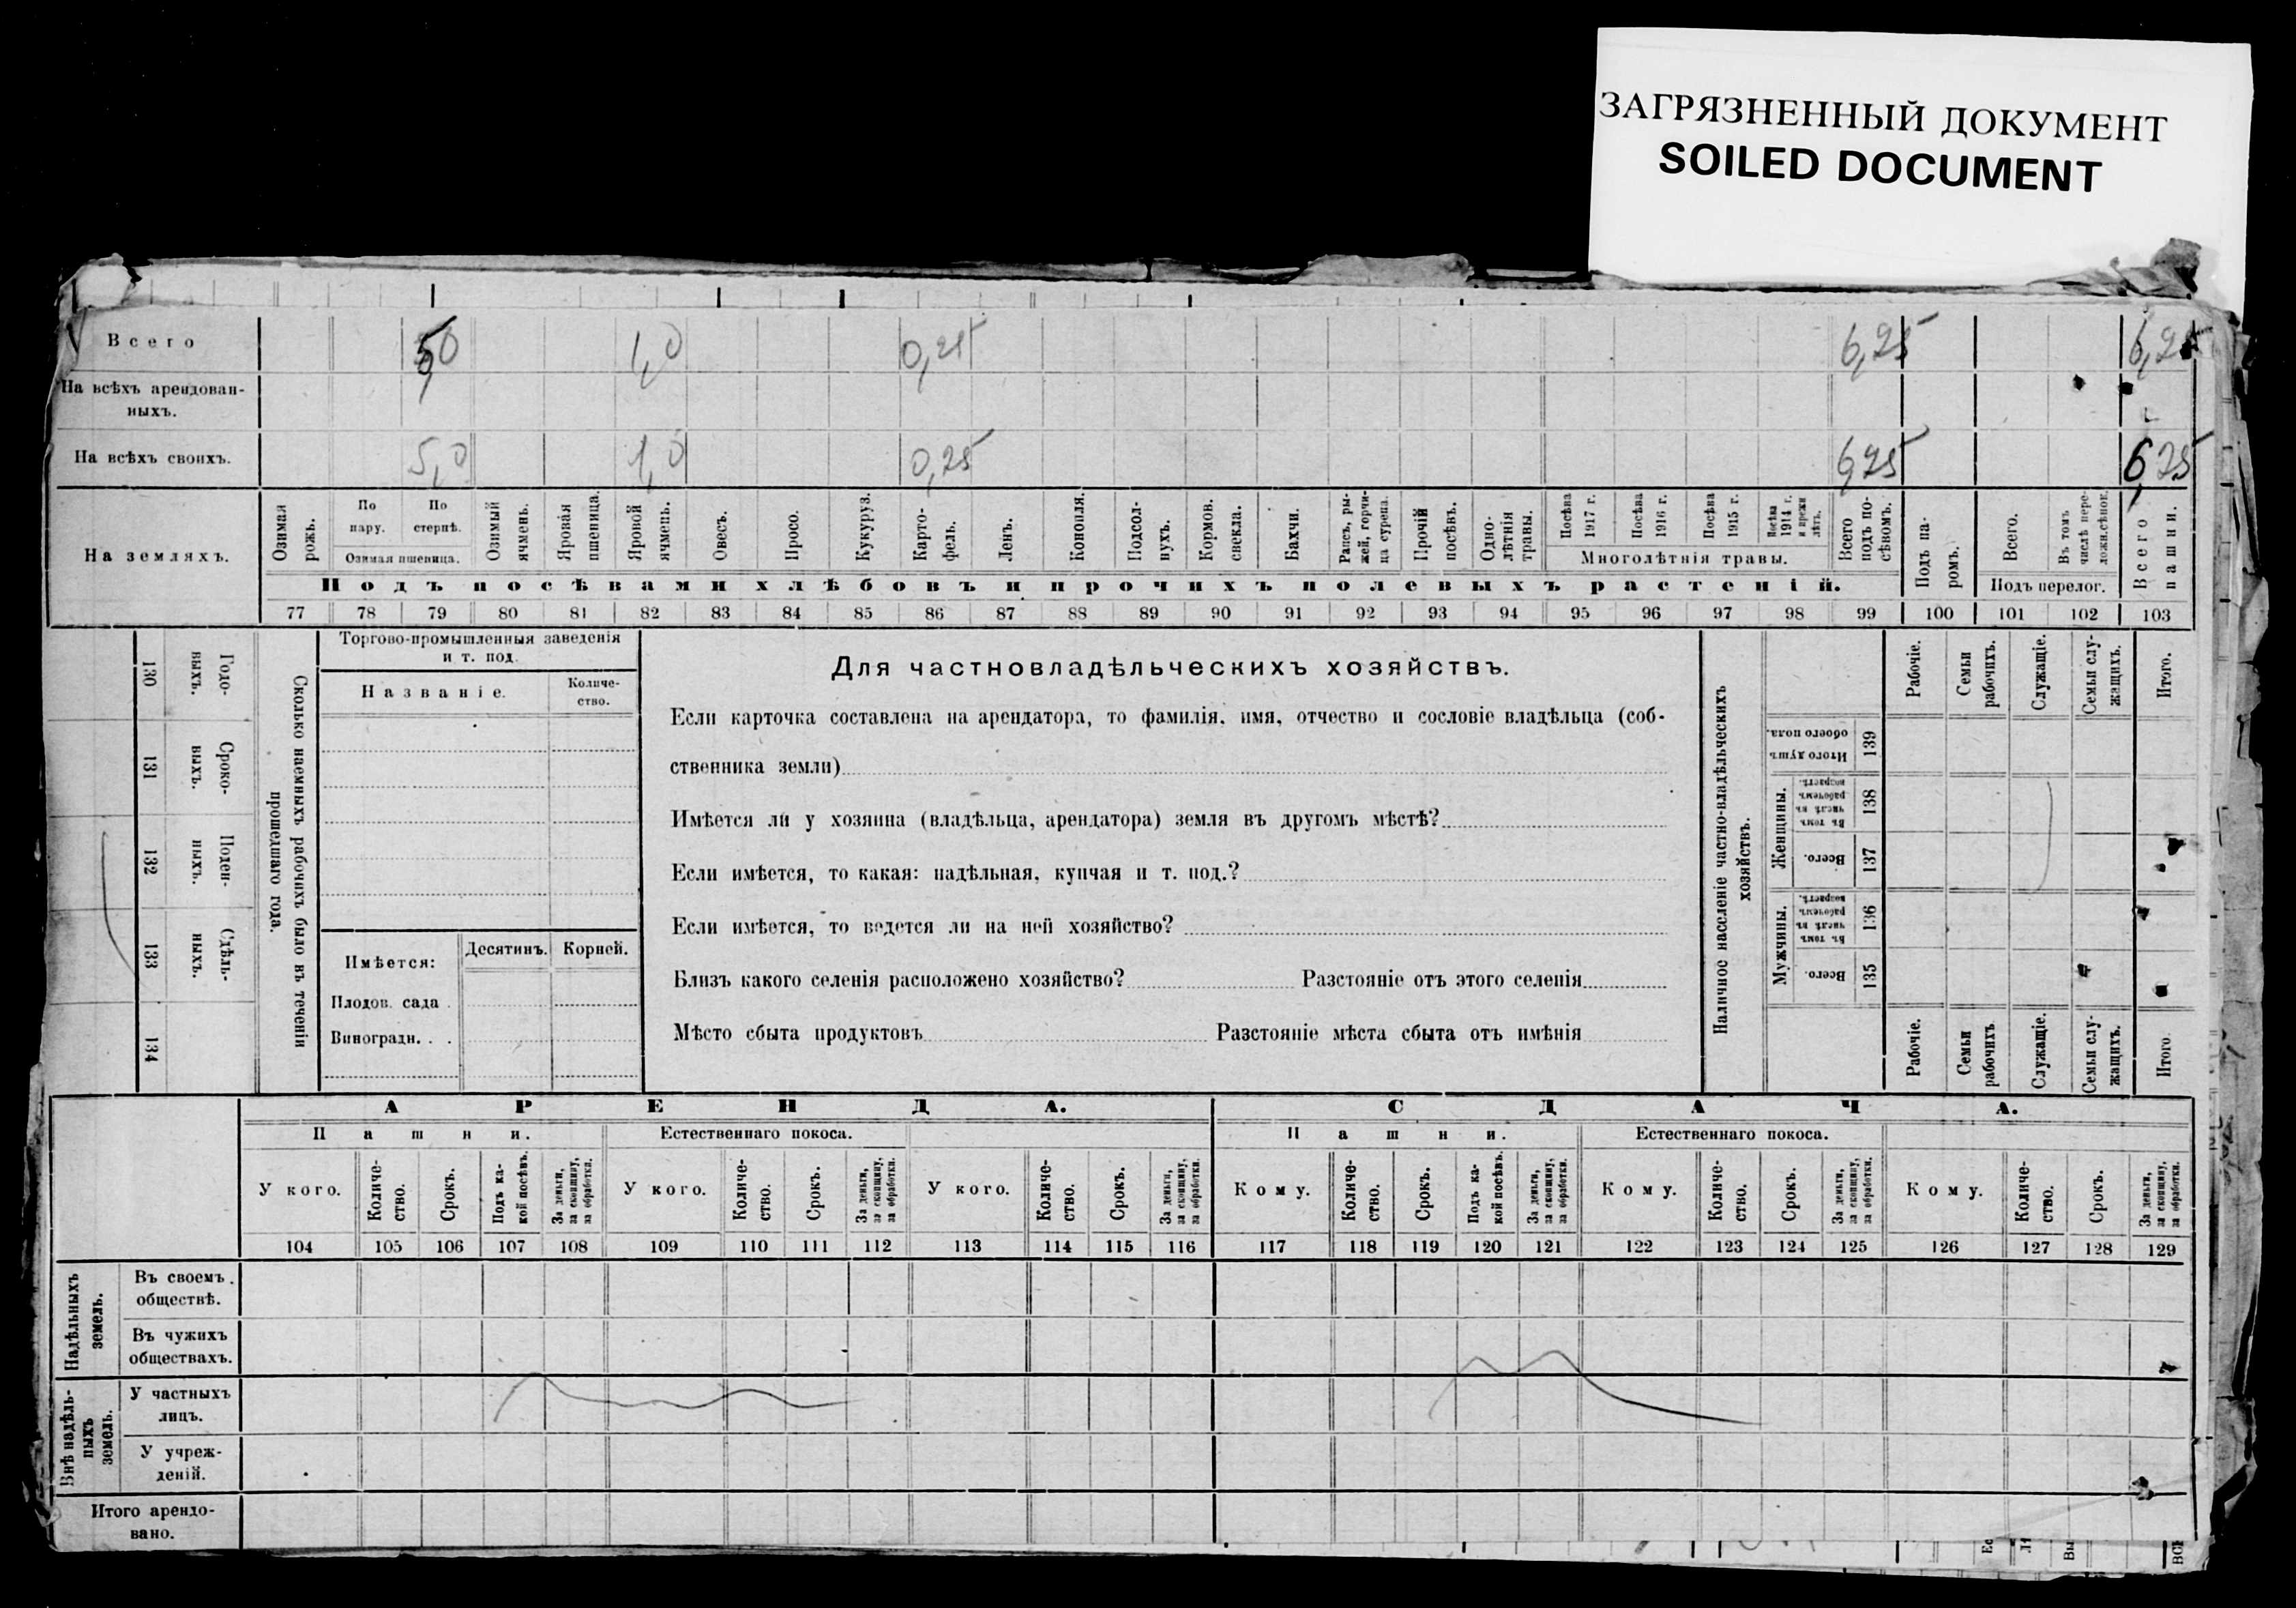 ЗАГРЯЗНЕННЫЙ ДОКУМЕНТ
SOILED DOCUMENT
Всего 5,0 1,0 0,25 6,25 6,25
На всѣхъ арендован-
ныхъ.
На всѣхъ своихъ. 5,0 1,0 0,25 6,25 6,25
На земляхъ.
Озимая рожь.
По пару.
По стернѣ.
Озимая пшеница.
Озимый ячмень.
Яровая пшеница.
Яровой ячмень.
Овесъ.
Просо.
Кукуруз.
Карто-
фель.
Ленъ.
Конопля.
Подсол-
нухъ.
Кормов. свекла.
Бахчи.
Рапсъ, ры-
жей, горчи-
ца сурепа.
Прочій посѣвъ.
Одно-
лѣтнія травы.
Посѣва 1917 г.
Посѣва 1916 г.
Посѣва 1915 г.
Посѣва 1914 г. и прежн лѣтъ.
Многолѣтнія травы.
Всего подъ по-
сѣвомъ.
Подъ па-
ромъ.
Всего.
Въ томъ числѣ пере-
ложн.сѣнок.
Подъ перелог.
Всего пашни.
Подъ посѣвами хлѣбовъ и прочихъ полевыхъ растеній.
77 78 79 80 81 82 83 84 85 86 87 88 89 90 91 92 93 94 95 96 97 98 99 100 101 102 103
130 Годо-
выхъ.
131 Сроко-
выхъ.
132 Поден-
ныхъ.
133 Сдѣль-
ныхъ.
134
Сколько наемныхъ рабочихъ было въ теченіи
прошедшаго года.
Торгово-промышленныя заведенія
и т. под.
Названіе.
Количе-
ство.
Имѣется: Десятинъ. Корней.
Плодов. сада .
Виноградн. . .
Для частновладѣльческихъ хозяйствъ.
Если карточка составлена на арендатора, то фамилія, имя, отчество и сословіе владѣльца (соб-
ственника земли)
Имѣется ли у хозяина (владѣльца, арендатора) земля въ другомъ мѣстѣ?
Если имѣется, то какая: надѣльная, купчая и т. под.?
Если имѣется, то ведется ли на ней хозяйство?
Близъ какого селенія расположено хозяйство? Разстояніе отъ этого селенія
Мѣсто сбыта продуктовъ Разстояніе мѣста сбыта отъ имѣнія
Наличное населеніе частно-владѣльческихъ
хозяйствъ.
Рабочіе.
Семьи рабочихъ.
Служащіе.
Семьи слу-
жащихъ.
Итого.
Итого душъ обоего пола. 139
Женщины.
Въ томъ числѣ въ рабочемъ возрастѣ. 138
Всего. 137
Мужчины.
Въ томъ числѣ въ рабочемъ возрастѣ. 136
Всего. 135
Рабочіе.
Семьи рабочихъ
Служащіе.
Семьи слу-
жащихъ.
Итого.
АРЕНДА. СДАЧА.
Пашни. Естественнаго покоса. Пашни. Естественнаго покоса.
У кого.
Количе-
ство.
Срокъ.
Подъ ка-
кой посѣвъ.
За деньги,
за скопщину,
за обработки.
У кого.
Количе-
ство.
Срокъ.
За деньги,
за скопщину,
за обработки.
У кого.
Количе-
ство.
Срокъ.
За деньги,
за скопщину,
за обработки.
Кому.
Количе-
ство.
Срокъ.
Подъ ка-
кой посѣвъ.
За деньги,
за скопщину,
за обработки.
Кому.
Количе-
ство.
Срокъ.
За деньги,
за скопщину,
за обработки.
Кому.
Количе-
ство.
Срокъ.
За деньги,
за скопщину,
за обработки.
104 105 106 107 108 109 110 111 112 113 114 115 116 117 118 119 120 121 122 123 124 125 126 127 128 129
Надѣльныхъ
земель.
Въ своемъ
обществѣ.
Въ чужихъ
обществахъ.
Внѣ надѣль-
ныхъ
земель.
У частныхъ
лицъ.
У учреж-
деній.
Итого арендо-
вано.